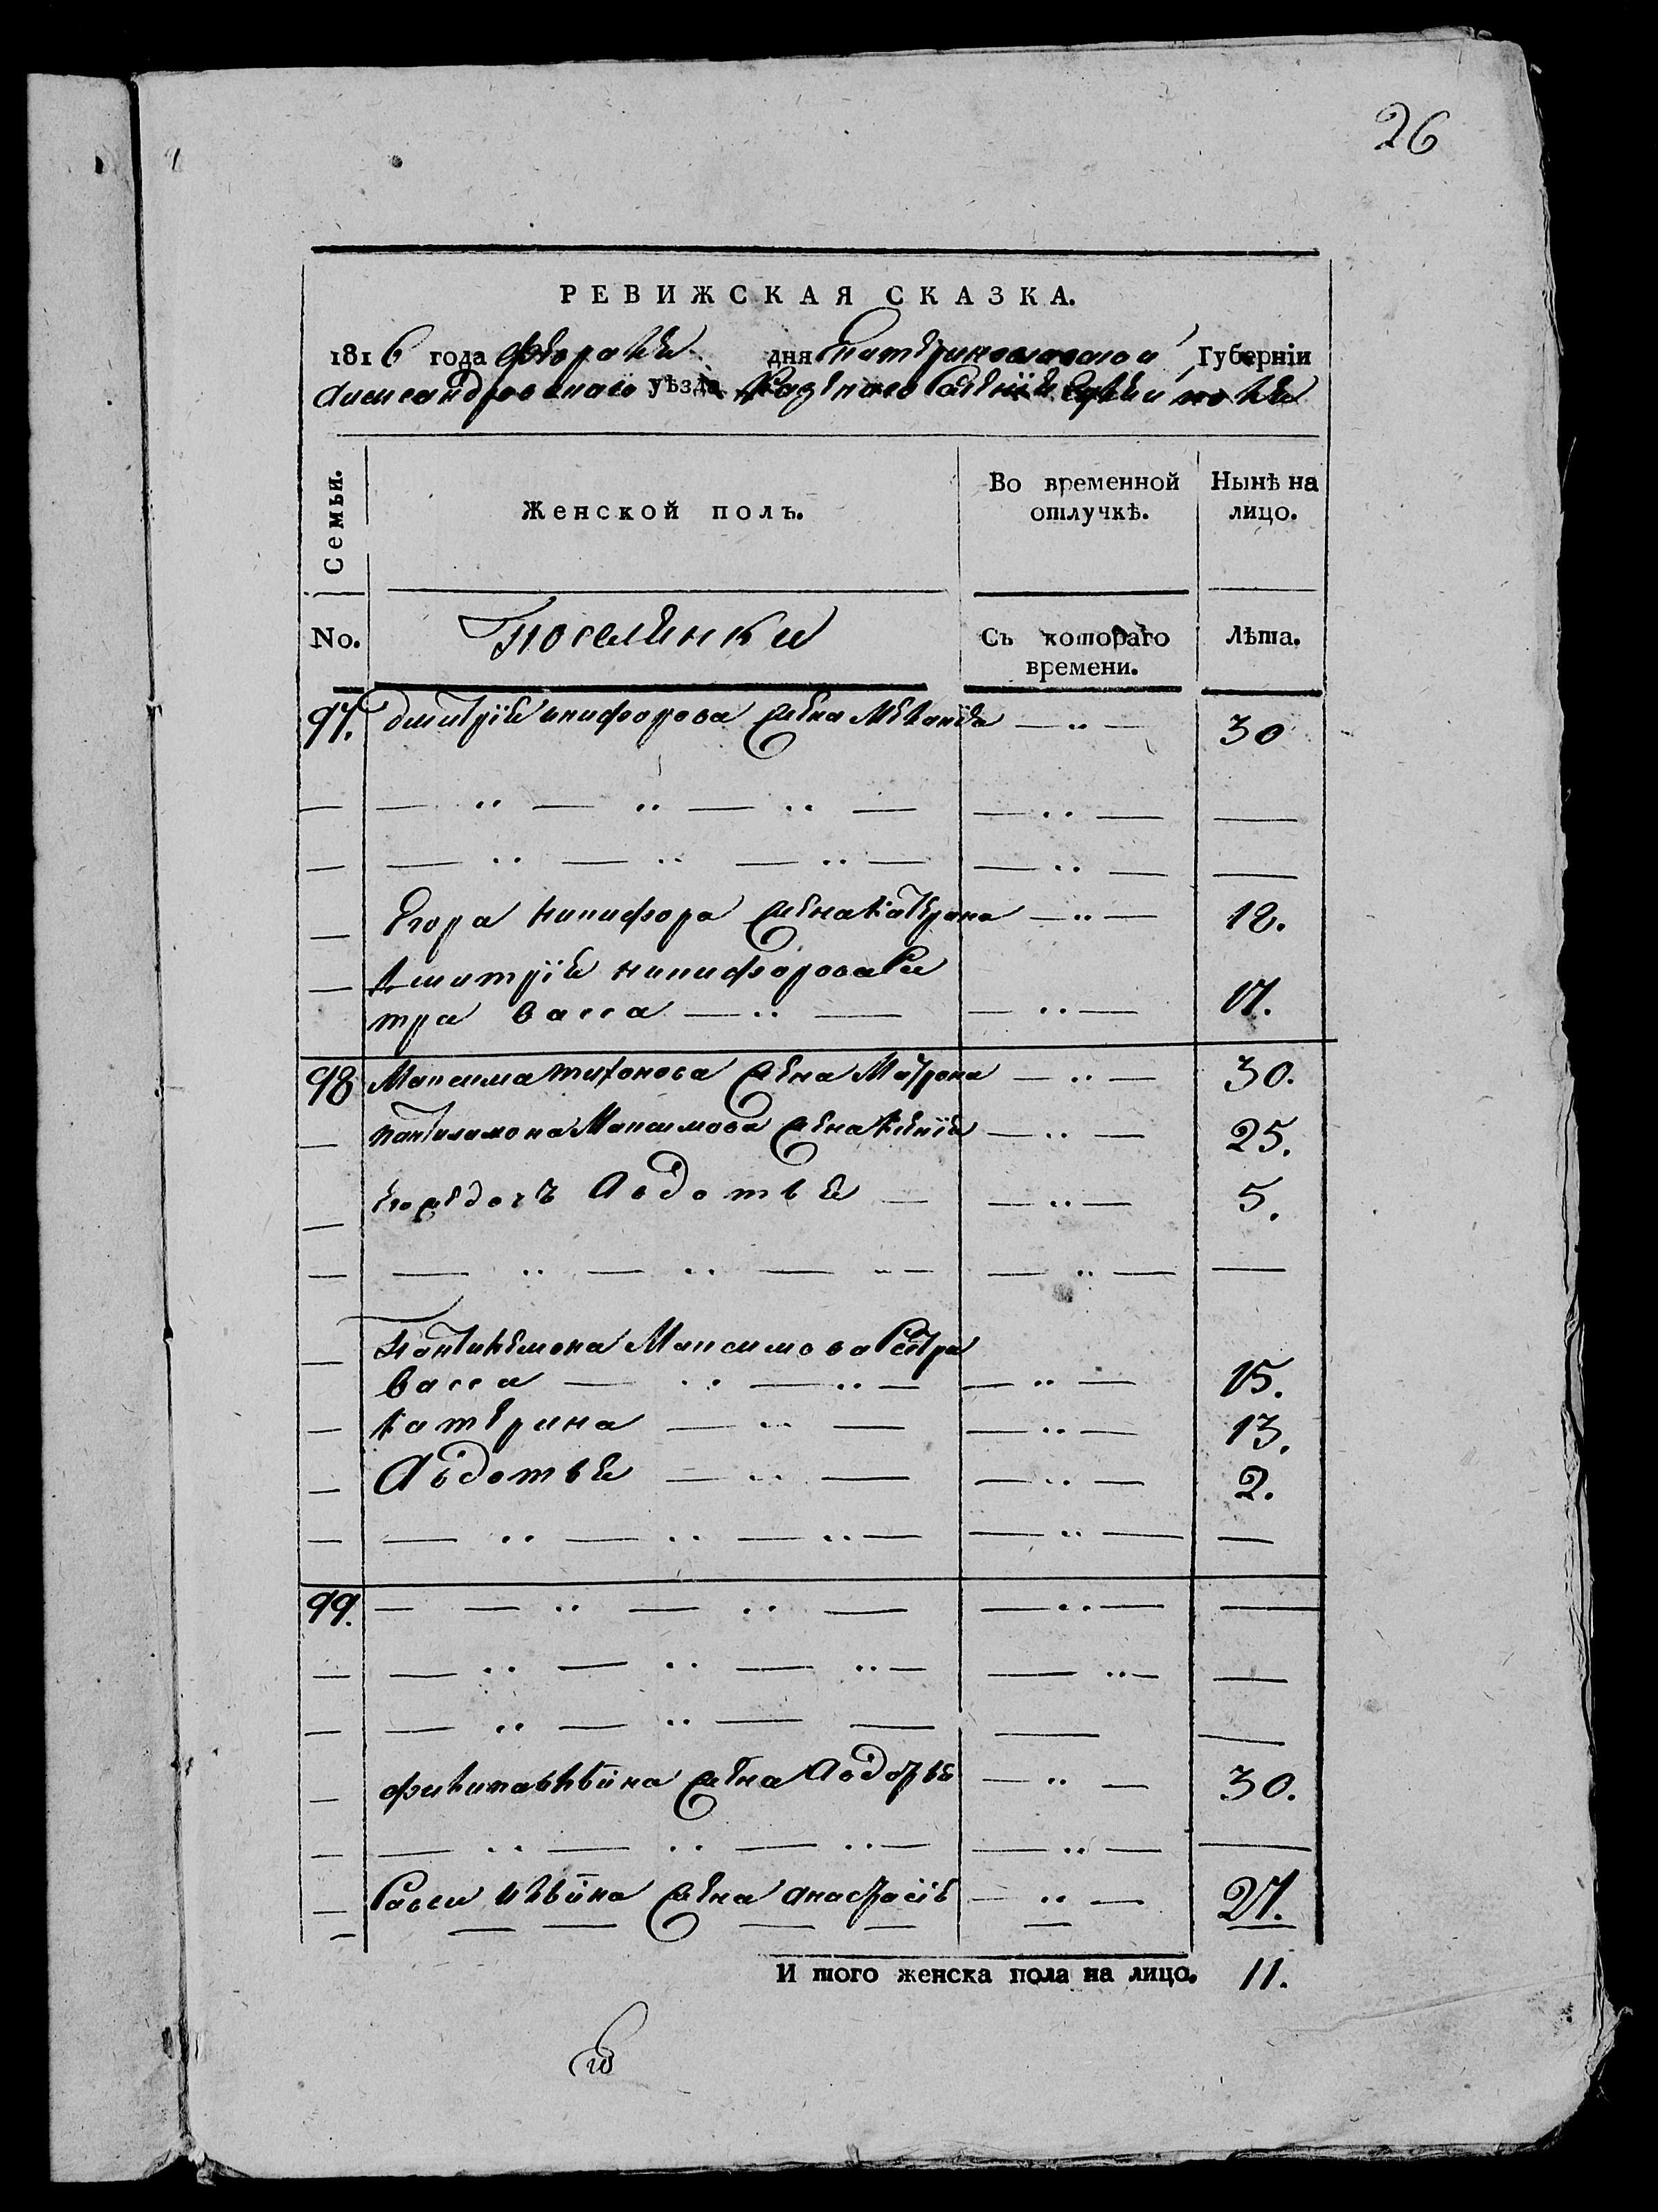 26
РЕВИЖСКАЯ СКАЗКА.
1816 года февраля дня Екатеринославской Губерніи
Александровскаго уѣзда Казенаго Селенія
Семьи.
Женской полъ.
Во временной отлучкѣ.
Нынѣ на лицо.
No.
Поселянки
Съ котораго времени.
Лѣта.
97. дмитрія никифорова жена Меланія — „ — 30
— Егора никифора жена катерина — „ — 18.
— дмитрія никифорова сес
тра васса — „ — — „ — 17.
98 Максима тихонова жена Матрона — „ — 30.
— пантилимона Максимова жена ксенія — „ — 25.
— Его же дочь Авдотья — — „ — 5.
— Пантилемона Максимова сестра
васса — „ — „ — — „ — 15.
— катерина — „ — — „ — 13.
— Авдотья — „ — — „ — 2.
99.
— жена Авдотья — „ — 30.
— жена анастасія — „ — 27.
И того женска пола на лицо. 11.